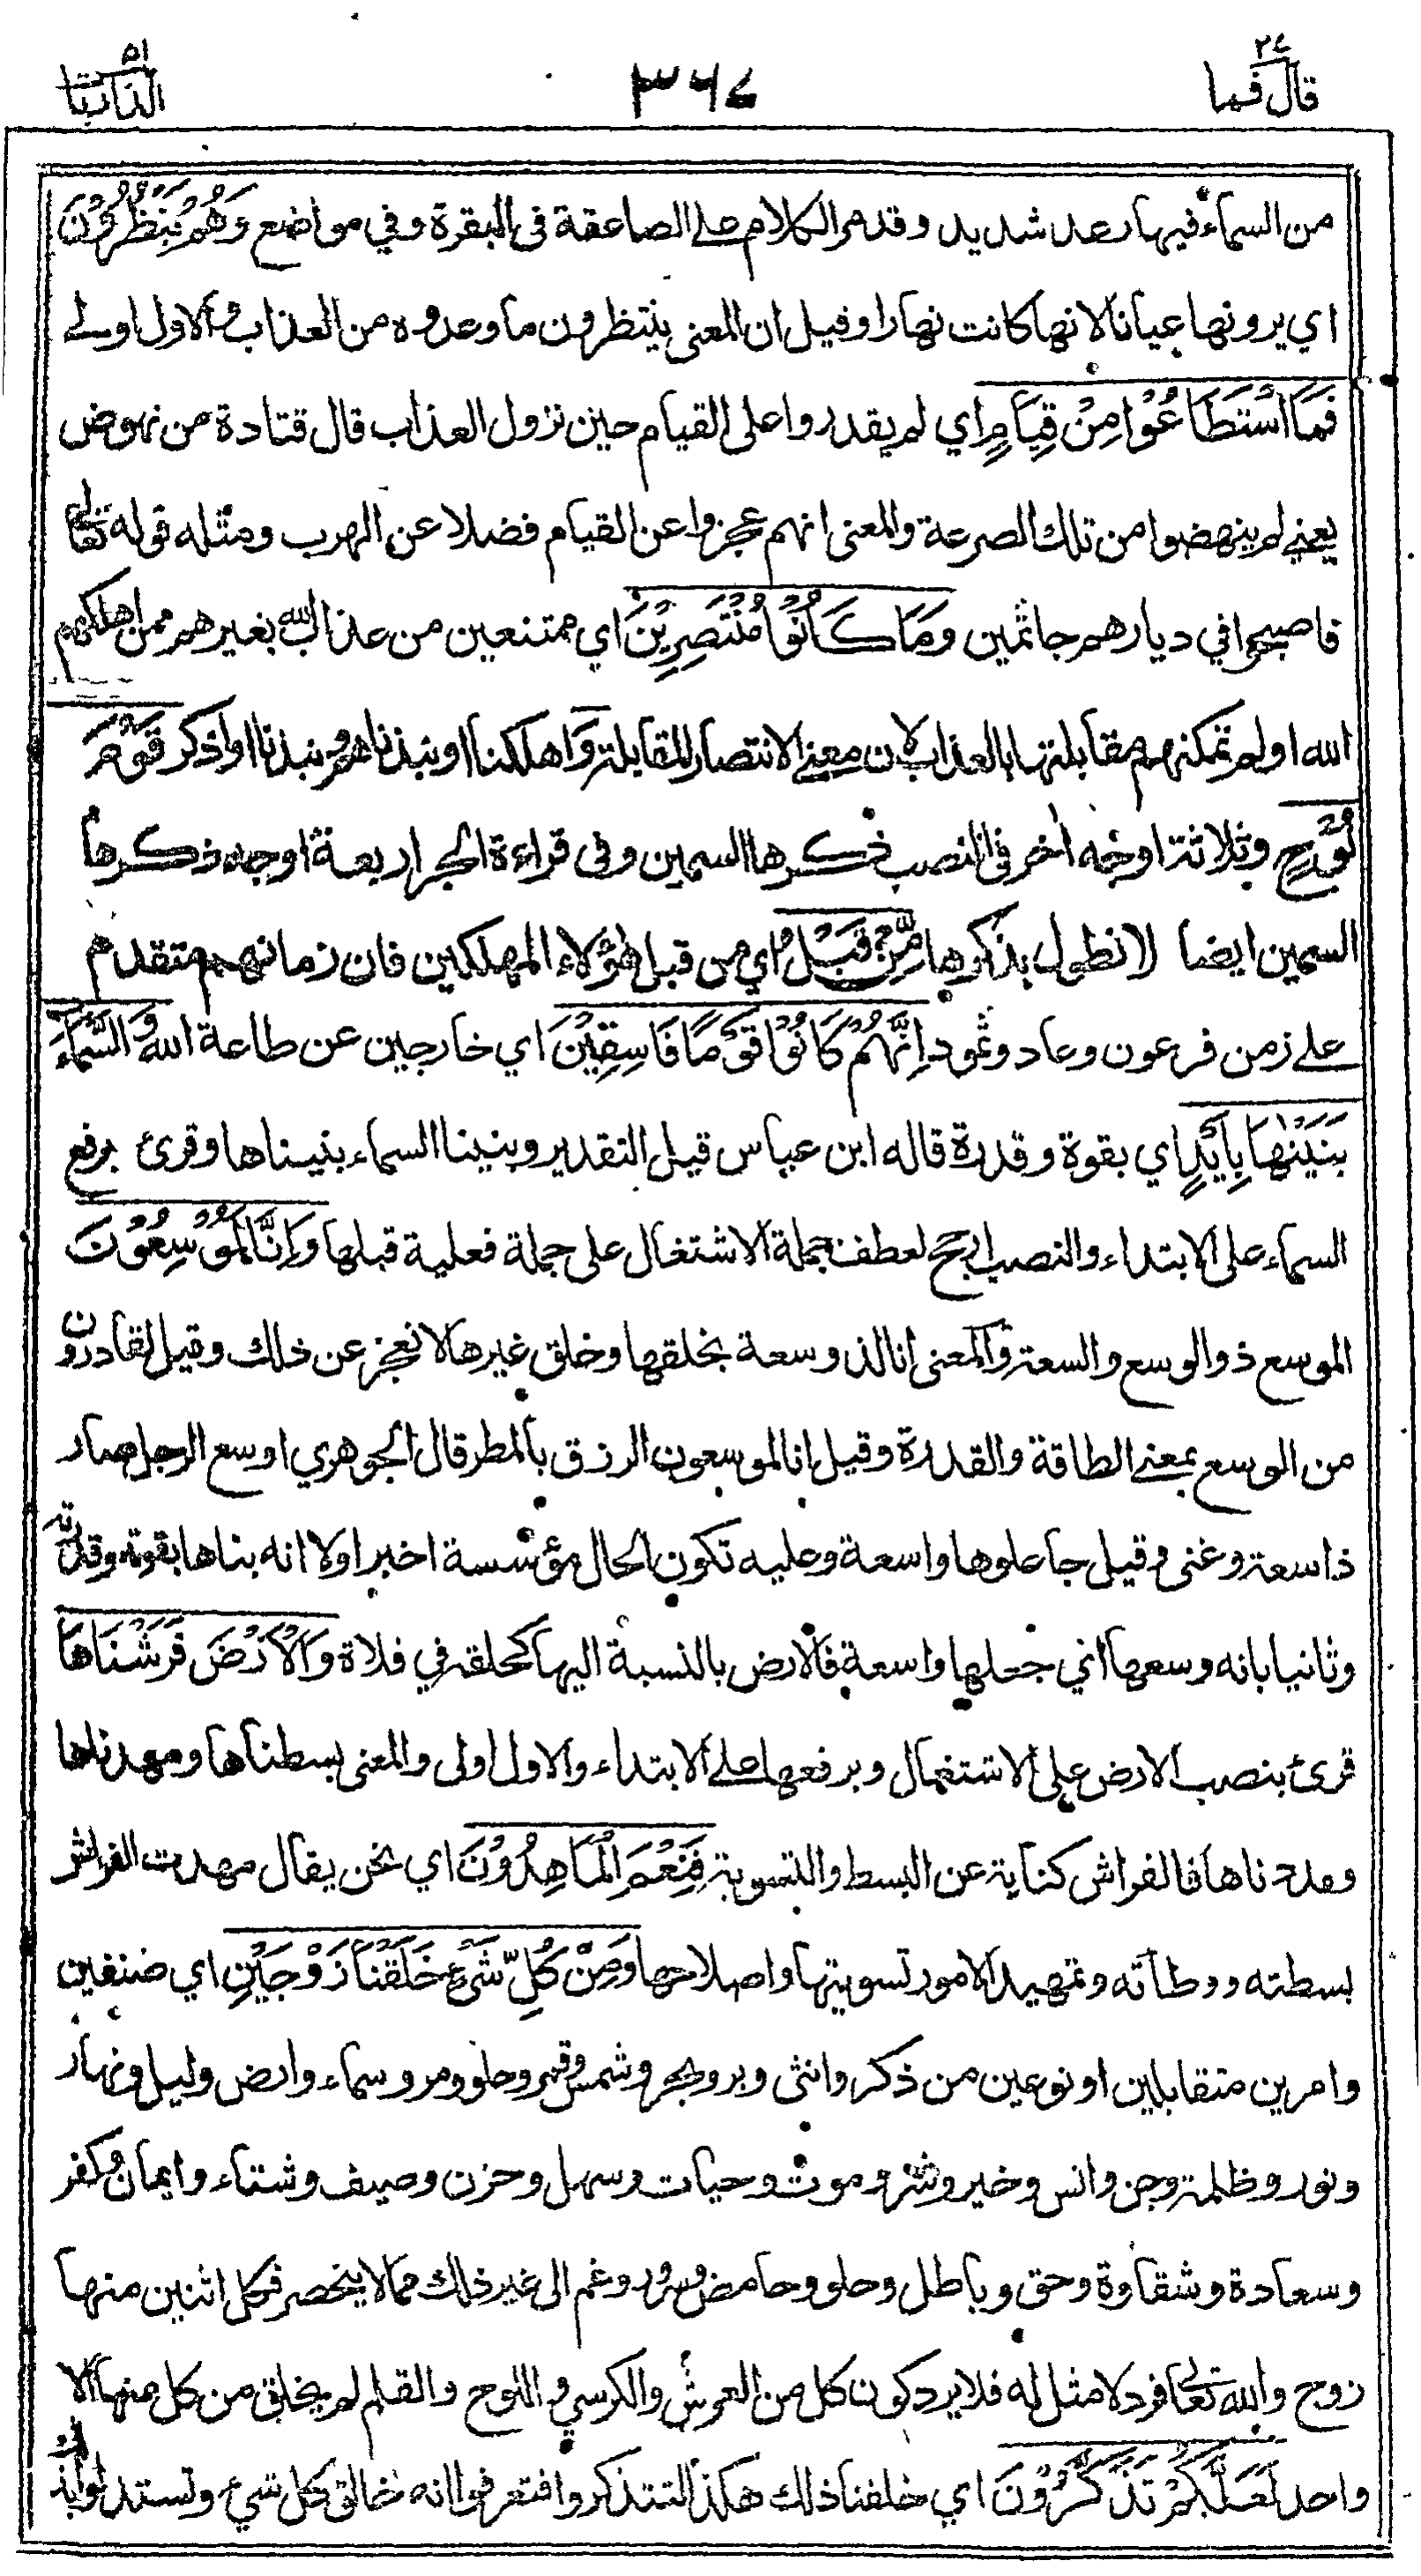 قال فما ٢٧
٣٦٧
الذاريات ٥١
من السماء فيها رعد شديد وقد مر الكلام على الصاعقة في البقرة وفي مواضع وَهُمْ يَنْظُرُوْنَ
اي يرونها عيانا لانها كانت نهارا وقيل ان المعنى ينتظرون ما وعدوه من العذاب والاول اولى
فَمَا اسْتَطَاعُوْا مِنْ قِيَامٍ اي لم يقدروا على القيام حين نزول العذاب قال قتادة من نهوض
يعني لم ينهضوا من تلك الصرعة والمعنى انهم عجزوا عن القيام فضلا عن الهرب ومثله قوله تعالى
فاصبحوا في ديارهم جاثمين وَمَا كَانُوْا مُنْتَصِرِيْنَ اي ممتنعين من عذاب الله بغيرهم ممن اهلكهم
الله او لم تمكنهم مقابلتها بالعذاب لان معنى الانتصار المقابلة وَ اهلكنا او نبذناهم نبذنا او اذكر قَوْمَ
نُوْحٍ وثلاثة اوجه اخر في النصب ذكرها السمين وفي قراءة الجر اربعة اوجه ذكرها
السمين ايضا لا نطول بذكرها مِنْ قَبْلُ اي من قبل هؤلاء المهلكين فان زمانهم متقدم
على زمن فرعون وعاد وثمود اِنَّهُمْ كَانُوْا قَوْمًا فَاسِقِيْنَ اي خارجين عن طاعة الله وَ السَّمَاءَ
بَنَيْنٰهَا بِاَيْدٍ اي بقوة وقدرة قاله ابن عباس قيل التقدير وبنينا السماء بنيناها وقرئ برفع
السماء على الابتداء والنصب ارجح لعطف جملة الاشتغال على جملة فعلية قبلها وَاِنَّا لَمُوْسِعُوْنَ
الموسع ذو الوسع والسعة والمعنى انا لذو سعة بخلقها وخلق غيرها لا نعجز عن ذلك وقيل لقادرون
من الوسع بمعنى الطاقة والقدرة وقيل انا لموسعون الرزق بالمطر قال الجوهري اوسع الرجل صار
ذا سعة وغنى وقيل جاعلوها واسعة وعليه تكون الحال مؤسسة اخبر اولا انه بناها بقوته وقدرته
وثانيا بانه وسعها اي جعلها واسعة فالارض بالنسبة اليها كحلقة في فلاة وَالْاَرْضَ فَرَشْنَاهَا
قرئ بنصب الارض على الاشتغال وبرفعها على الابتداء والاول اولى والمعنى بسطناها ومهدناها
ومددناها فالفراش كناية عن البسط والتسوية فَنِعْمَ الْمَاهِدُوْنَ اي نحن يقال مهدت الفراش
بسطته ووطأته وتمهيد الامور تسويتها واصلاحها وَمِنْ كُلِّ شَيْءٍ خَلَقْنَا زَوْجَيْنِ اي صنفين
وامرين متقابلين او نوعين من ذكر وانثى وبر وبحر وشمس وقمر وحلو ومر وسماء وارض وليل ونهار
ونور وظلمة وجن وانس وخير وشر وموت وحيات وسهل وحزن وصيف وشتاء وايمان وكفر
وسعادة وشقاوة وحق وباطل وحلو وحامض وسرور وغم الى غير ذلك مما لا ينحصر فكل اثنين منها
زوج والله تعالى فرد لا مثل له فلا يرد كون كل من العرش والكرسي واللوح والقلم لم يخلق من كل منها الا
واحد لَعَلَّكُمْ تَذَكَّرُوْنَ اي خلقنا ذلك هكذا لتتذكروا فتعرفوا انه خالق كل شيء وتستدلوا